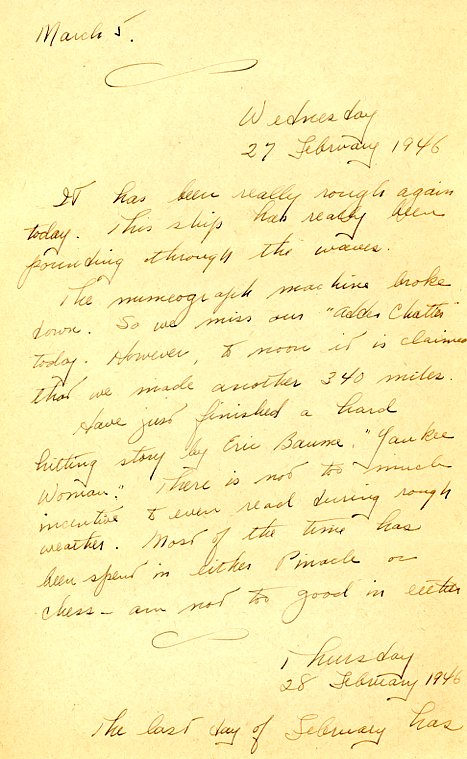 March 5.
Wednesday
27 February 1946
It has been really rough again
today. This ship has really been
pounding through the waves.
The mimeograph machine broke
down. So we miss our "Ada's Chatter"
today. However, to noon it is claimed
that we made another 340 miles.
Have just finished a hard
hitting story by Eric Baume, "Yankee
Woman." There is not too much
incentive to even read during rough
weather. Most of the time has
been spent in either Pinacle or
chess - am not too good in either
Thursday
28 February 1946
The last day of February has